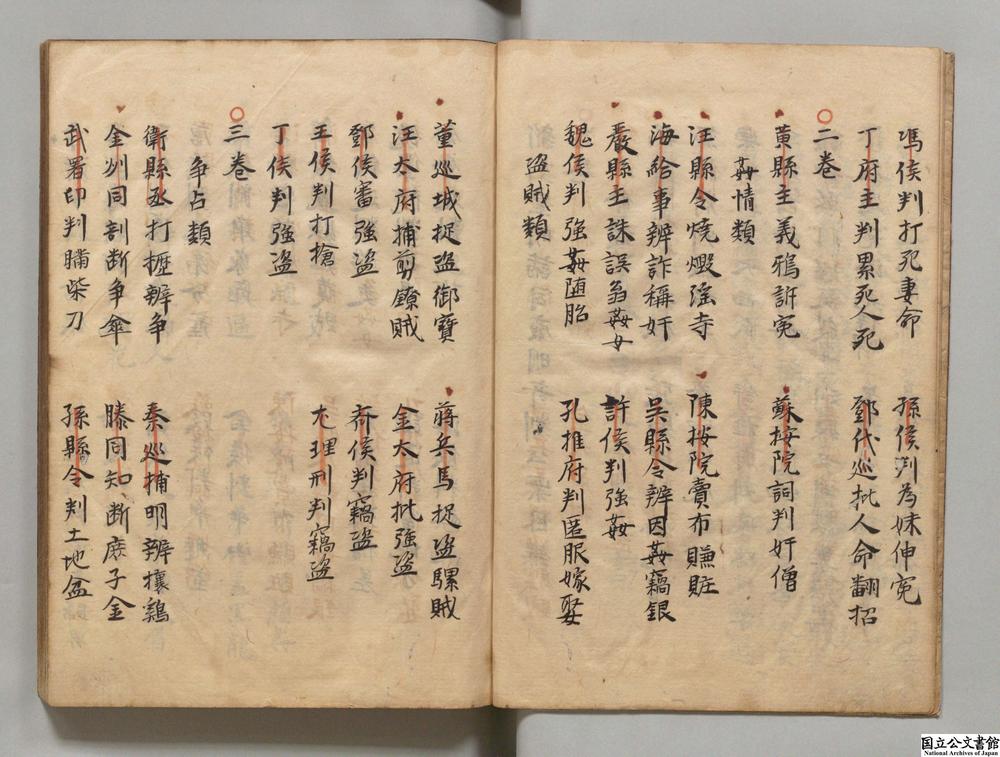 馮侯判打死妻命　孫侯判為妹伸冤
丁府主判累死人死　鄧代巡批人命翻招
二卷
黄縣主義鴉訴冤　蘇按院詞判奸僧
姦情類
汪縣令燒燬淫寺　陳按院賣布賺賍
海給事辨詐稱奸　吳縣令辨因姦竊銀
嚴縣主誅誤翁姦女　許侯判強姦
魏侯判強姦堕胎　孔推府判匿服嫁娶
盗賊類
董巡城捉盗御寶　蔣兵馬捉盗騾賊
汪太府捕剪鐐賊　金太府批強盗
鄧侯審強盗　齊侯判竊盗
王侯判打搶　尤理刑判竊盗
丁侯判強盗
三卷
争占類
衛縣丞打櫪辨争　秦巡捕明辨攘鷄
金州同剖断争傘　滕同知断庶子金
武署印判瞞柴刀　孫縣令判土地盆
国立公文書館
National Archives of Japan